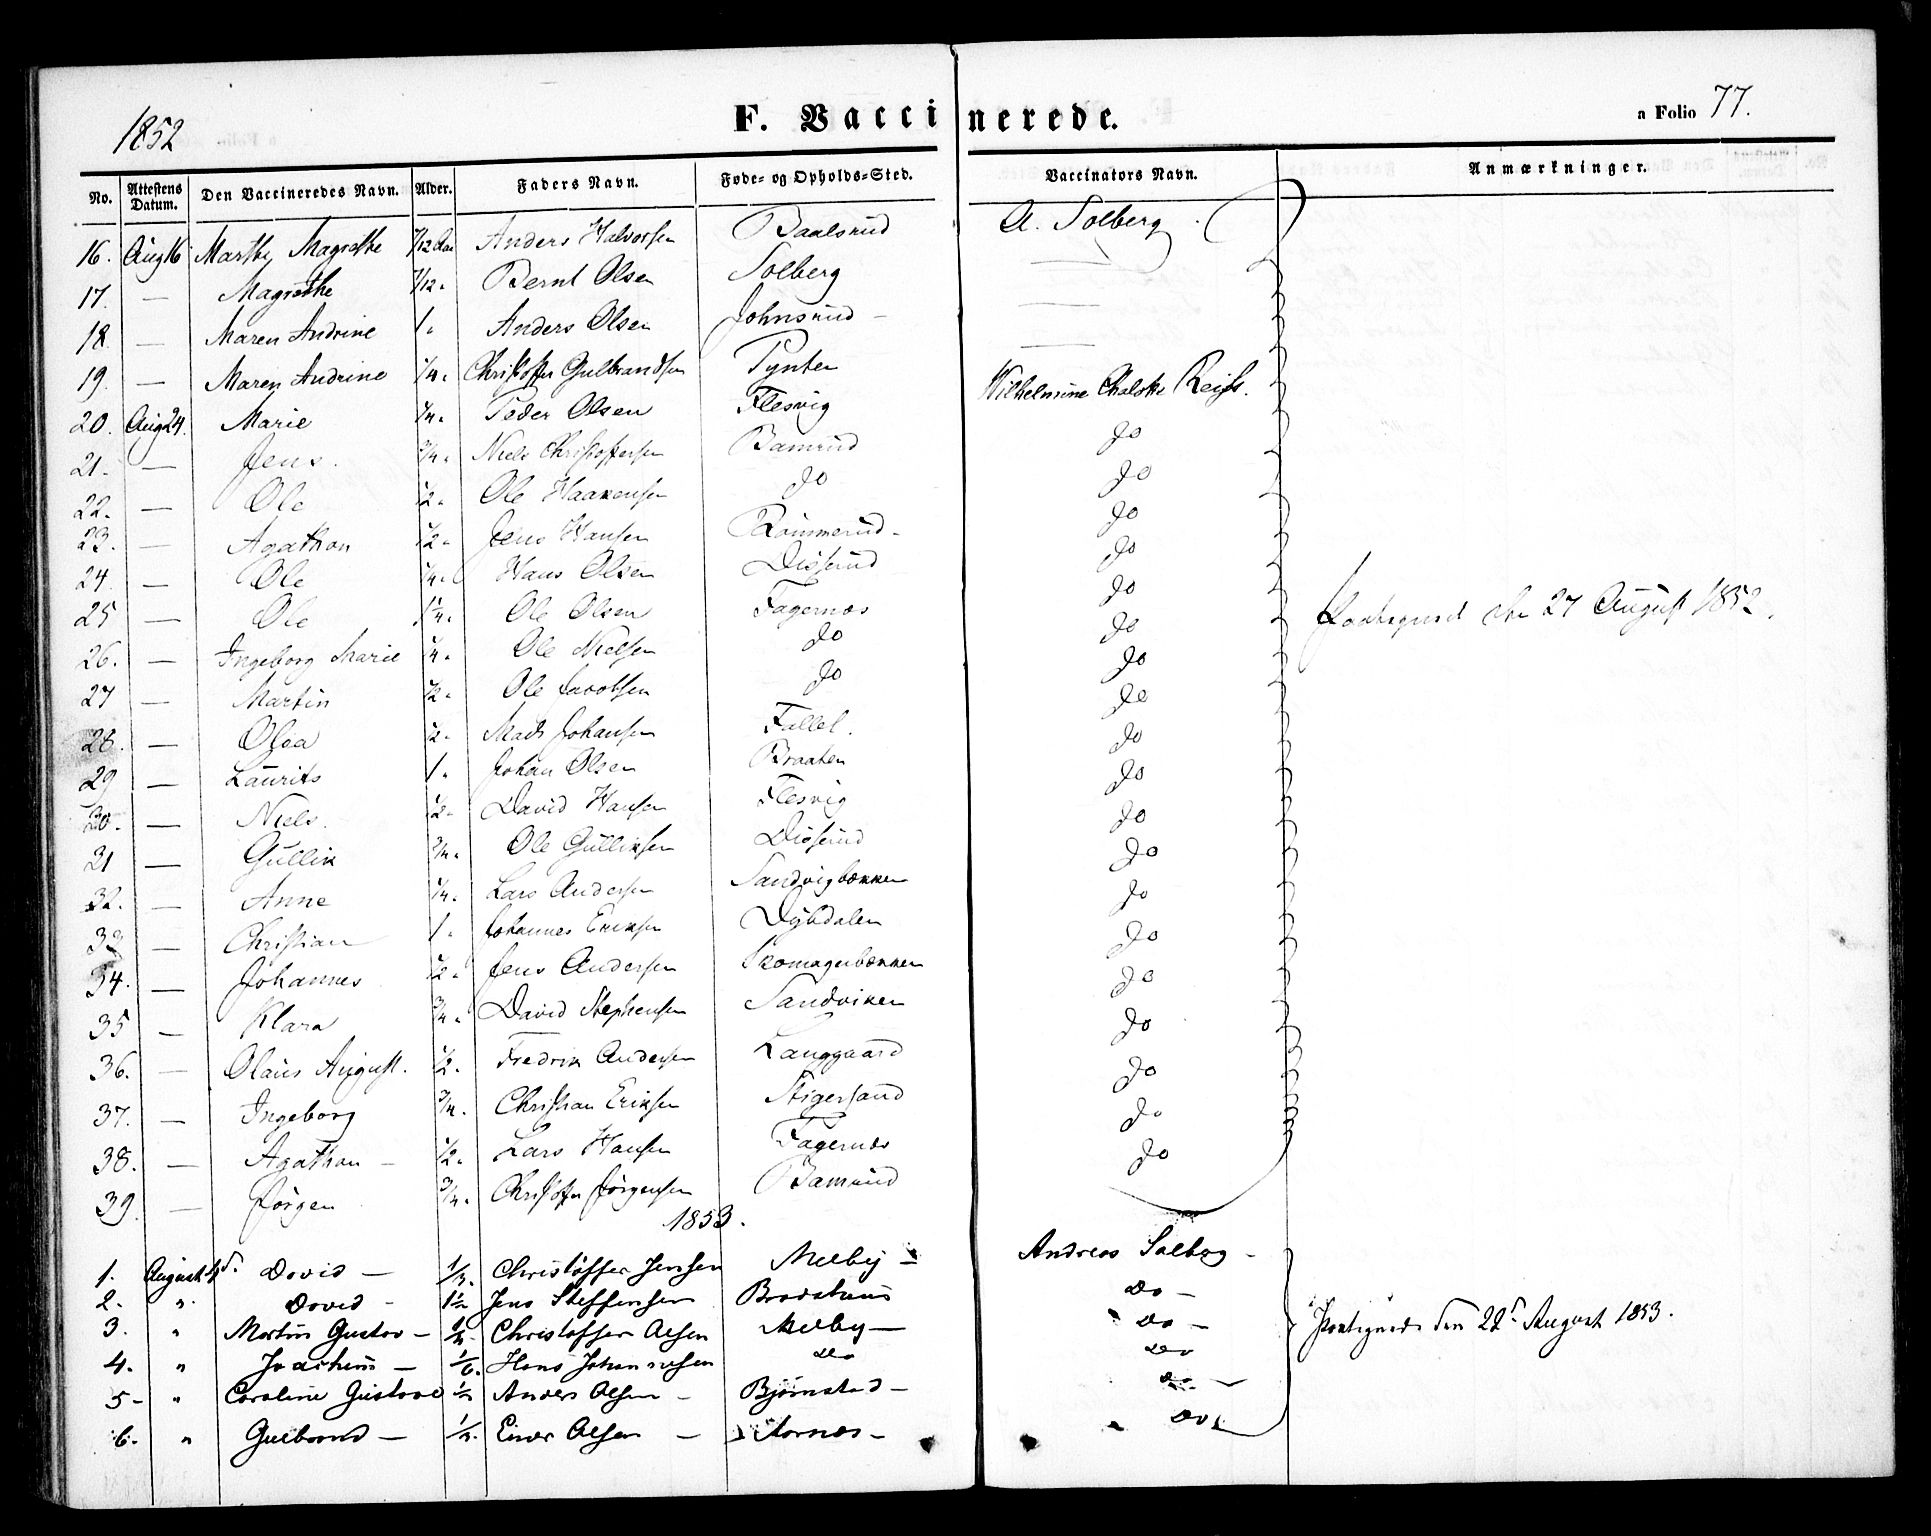 1852
F. Vaccinerede.
a Folio 77.
No. Attestens Datum. Den Vaccineredes Navn. Alder. Faders Navn. Føde- og Opholds-Sted. Vaccinators Navn. Anmærkninger.
16. Aug 16 Marthe Magrethe 7/12 Aar Anders Halvorsen Baalsrud A. Solberg
17. — Magrethe 7/12 Bernt Olsen Solberg —
18. — Maren Andrine 1 Anders Olsen Johnsrud — —
19. — Maren Andrine 1/4 Christoffer Gulbrandsen Tynten —
20. Aug 24. Marie 1/4 Peder Olsen Flesvig Wilhelmine
21. — Jens 3/4 Niels Christoffersen Bamrud do
22. — Ole 1/2 Ole Haakensen do do
23. — Agathon 1/2 Jens Hansen Rommerud do
24 — Ole 1/4 Hans Olsen Disserud do
25 — Ole 1 1/4 Ole Olsen Fagernæs do 27 August 1852.
26. — Ingeborg Marie 1/4 Ole Nielsen do do
27 — Martin 1/2 Ole Jacobsen do do
28. — Olea 1/2 Mads Johansen Fallet. do
29 — Laurits 1 Johan Olsen Braaten do
30. — Niels 1/2 David Hansen Flesvig do
31 — Gullik 3/4 Ole Gulliksen Disserud do
32. — Anne 1/4 Lars Andersen Sandvigbækken do
33 — Christian 1 Johannes Eriksen Dybdalen do
34. — Johannes 1/2 Jens Andersen Skomagerbækken do
35 — Klara 3/4 David Stephensen Sandviken do
36. — Olaus August. 1/2 Fredrik Andersen Langgaard do
37. — Ingeborg 3/4 Christian Eriksen Stigersand do
38. — Agathon — 1/2 Lars Hansen Fagernæs do
39. — Jørgen 3/4 Christoffer Jørgensen Bamrud do
1853.
1. August David — Christoffer Jensen Melby Andreas Solberg —
2. " David — 1 1/2 Jens Steffensen Do —
3. " Martin Gustav — Christoffer Olsen Melby — Do — den 22d August 1853.
4. " Joachim — 1/6 Hans Johannesen Do Do
5 — " Caroline Gustava 1/2 Anders Olsen — Bjørnstad — Do —
6. " Gulbrand — Einer Olsen — Do